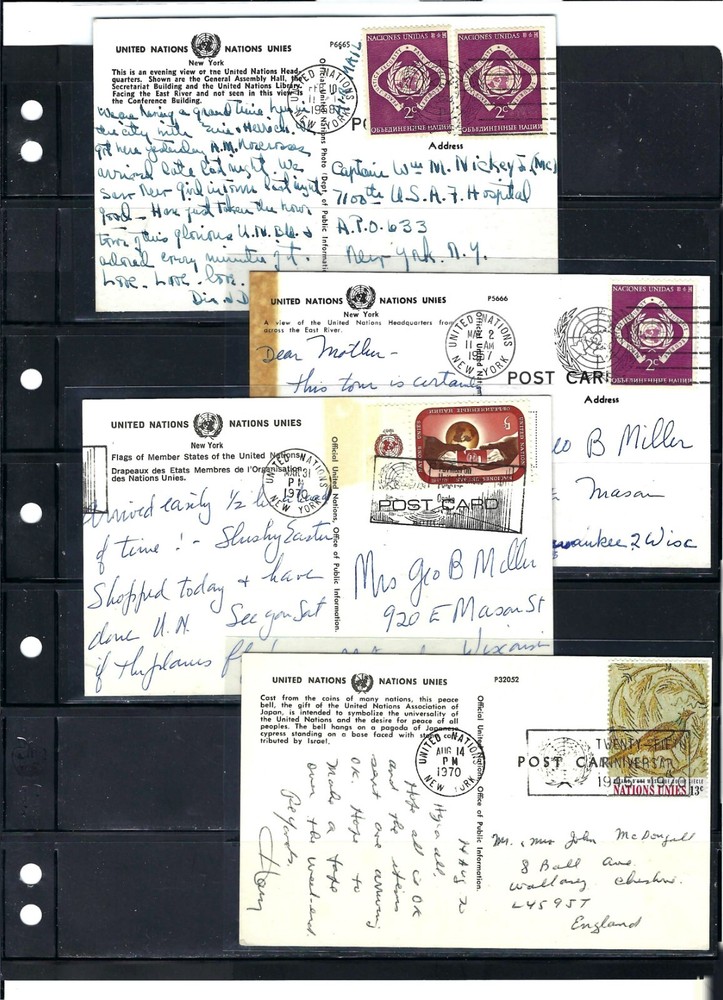 UNITED NATIONS NATIONS UNIES
New York
P6665
This is an evening view of the United Nations Head-
quarters. Shown are the General Assembly Hall, the
Secretariat Building and the United Nations Library.
Facing the East River and not seen in this view is
the Conference Building.
Official United Nations Photo (Dept. of Public Informati
MAIL
UNITED NATIONS
NEW YORK
NACIONES UNIDAS
2c
ОБЪЕДИНЕННЫЕ НАЦИИ
NACIONES UNIDAS
2c
ОБЪЕДИНЕННЫЕ НАЦИИ
PO
Address
the city with
got here yesterday A.M.
arrived late last night. We
saw New Girl in town last night
good - Have just taken the hour
tour of this glorious U.N. Bld. &
adored every minute of it.
Love. Love. Love.
Captain Wm M. Nickey Jr. (MC)
7100th U.S.A.F. Hospital
A.P.O. 633
New York. N.Y.
UNITED NATIONS NATIONS UNIES
New York
P5666
A view of the United Nations Headquarters from
across the East River.
Official United
UNITED NATIONS
MAR 2
11 AM
1957
NEW YORK
NACIONES UNIDAS
2c
ОБЪЕДИНЕННЫЕ НАЦИИ
POST CAR
Address
Dear Mother -
This tour is certainly
eo B Miller
E Mason
waukee 2 Wisc
UNITED NATIONS NATIONS UNIES
New York
Flags of Member States of the United Nations
Drapeaux des Etats Membres de l'Organisation
des Nations Unies.
Official United Nations, Office of Public Information.
UNITED NATIONS
MAR 31
PM
1970
NEW YORK
5
POST CARD
Arrived easily 1/2 hr ahead
of time! - Slushy Easter
Shopped today & have
done U.N. See you Sat
if the planes
Mrs Geo B Miller
920 E Mason St
Wisconsin
UNITED NATIONS NATIONS UNIES
P32052
Cast from the coins of many nations, this peace
bell, the gift of the United Nations Association of
Japan, is intended to symbolize the universality of
the United Nations and the desire for peace of all
peoples. The bell hangs on a pagoda of Japanese
cypress standing on a base faced with stone con-
tributed by Israel.
Official United Nations, Office of Public Information.
UNITED NATIONS
AUG 14
PM
1970
NEW YORK
POST CAR
TWENTY-FIFTH
ANNIVERSAR
NATIONS UNIES 13c
14 Aug 70
Hy a all,
Hope all is OK
and the items
sent are arriving
OK. Hope to
make a tape
over the weekend.
Regards,
Mr. & Mrs John McDougall
8 Ball Ave.
Wallasey Cheshire.
L45 9ST
England